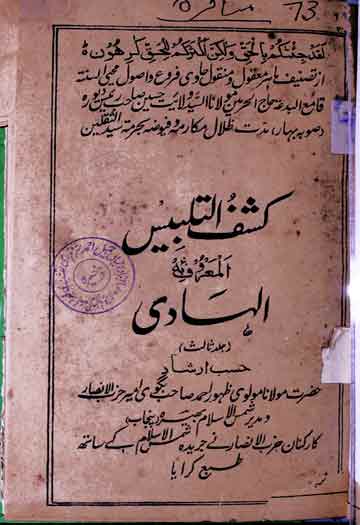 مناظرہ
73
لَقَدْ جِئْنٰکُمْ بِالْحَقِّ وَلٰکِنَّ اَکْثَرَکُمْ لِلْحَقِّ کٰرِهُوْنَ
از تصنیف ماہر معقول و منقول حاوی فروع و اصول محی السنۃ
قامع البدعۃ حاج الحرمین مولانا السید ولایت حسین صاحب رئیس دیورہ
(صوبہ بہار) مدت ظلال مکارمہ و فیوضہ بحرمتہ سید الثقلین
کشف التلبیس
المعروف بہ
الہادی
(جلد ثالث)
حسب ارشاد
حضرت مولانا مولوی ظہور احمد صاحب بگوی امیر حزب الانصار
و مدیر شمس الاسلام بھیرہ (پنجاب)
کارکنان حزب الانصار نے جریدہ شمس الاسلام کے ساتھ
طبع کرایا